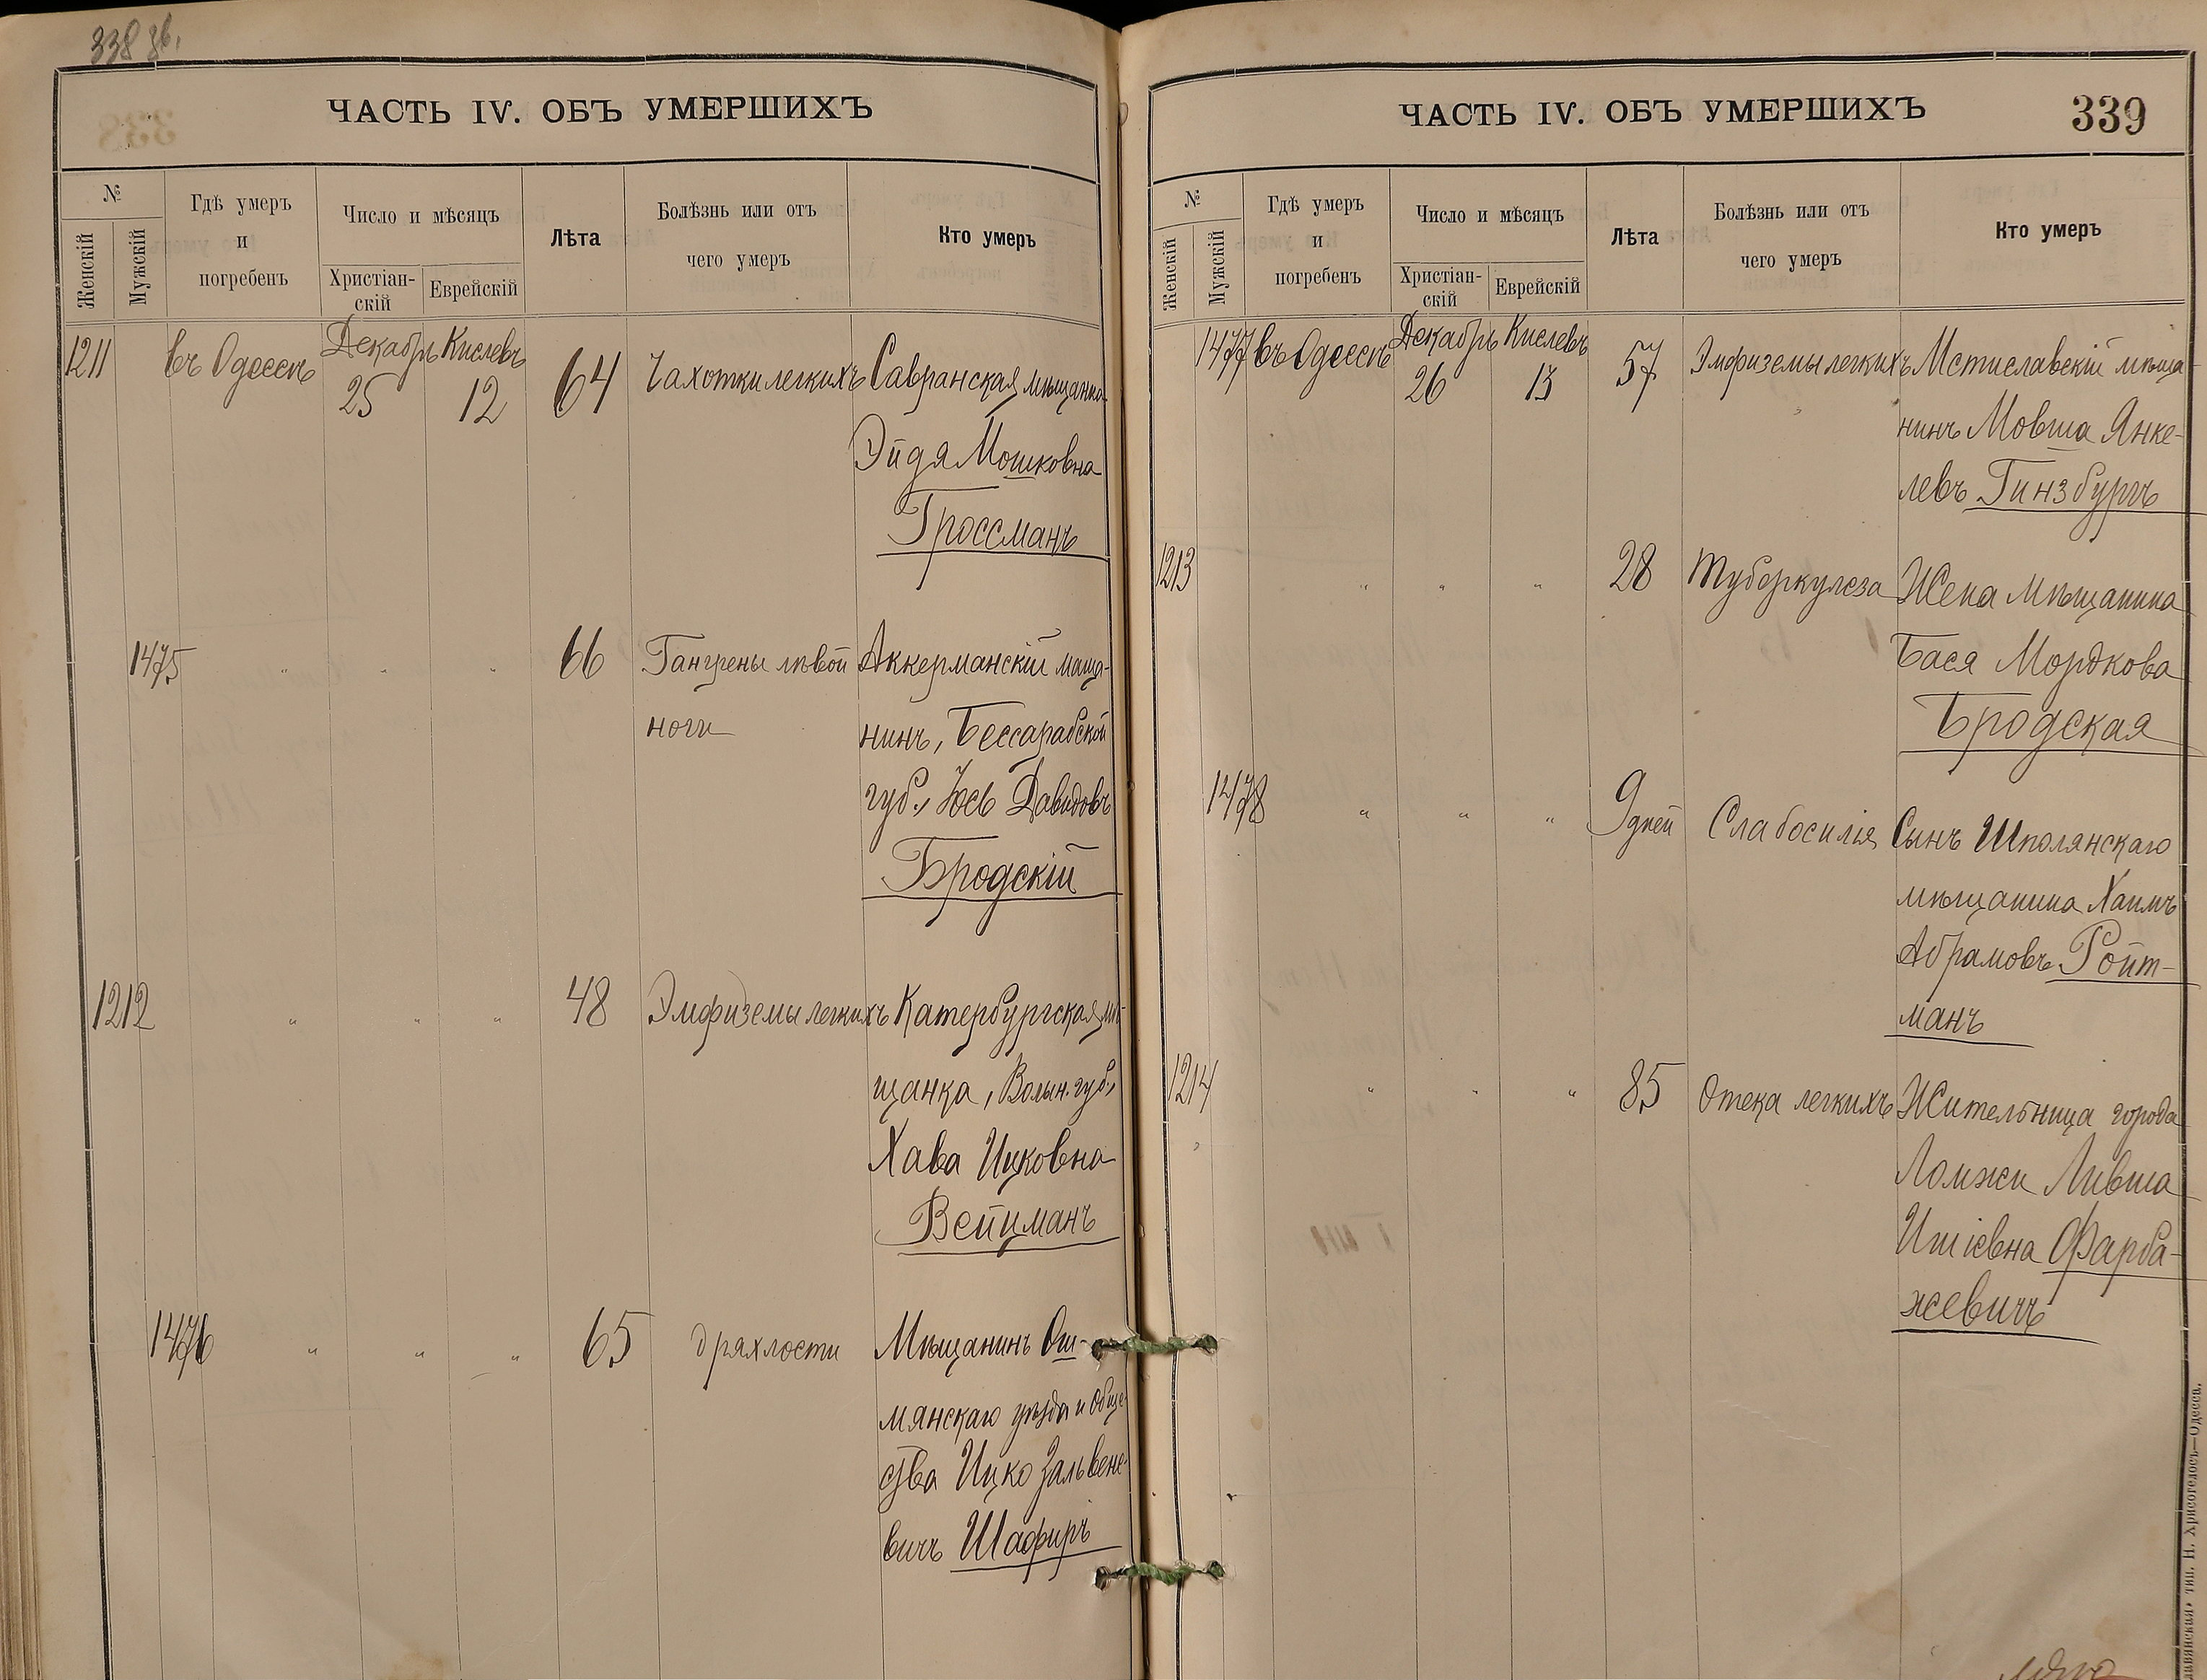 338 зв.
ЧАСТЬ IV. ОБЪ УМЕРШИХЪ
№
Женскій
Мужскій
Гдѣ умеръ
и
погребенъ
Число и мѣсяцъ
Христіан-
скій
Еврейскій
Лѣта
Болѣзнь или отъ
чего умеръ
Кто умеръ
1211 въ Одессѣ Декабрь 25 Кислевъ 12 64 Чахотки легкихъ Савранская мѣщанка
Эйдя Мошковна
Гроссманъ
1475 " " " 66 Гангрены лѣвой Аккерманскій мѣща-
ноги нинъ, Бессарабской
губ., Іось Давидовъ
Бродскій
1212 " " " 48 Эмфиземы легкихъ Катербургская мѣ-
щанка, Волын. губ.,
Хава Ицковна
Вейцманъ
1476 " " " 65 дряхлости Мѣщанинъ Ош-
мянскаго уѣзда и обще-
ства Ицко Зальвене-
вичъ Шафиръ
ЧАСТЬ IV. ОБЪ УМЕРШИХЪ
339
№
Женскій
Мужскій
Гдѣ умеръ
и
погребенъ
Число и мѣсяцъ
Христіан-
скій
Еврейскій
Лѣта
Болѣзнь или отъ
чего умеръ
Кто умеръ
1477 въ Одессѣ Декабрь 26 Кислевъ 13 57 Эмфиземы легкихъ Мстиславскій мѣща-
нинъ Мовша Янке-
левъ Гинзбургъ
1213 " " " 28 Туберкулеза Жена мѣщанина
Бася Мордкова
Бродская
1478 " " " 9 дней Слабосилія Сынъ Шполянскаго
мѣщанина Хаимъ
Абрамовъ Ройт-
манъ
1214 " " " 85 Отека легкихъ Жительница города
Ломжи Ливша
Ишіевна Фарба-
жевичъ
тип. Н. Хрисогелосъ—Одесса.